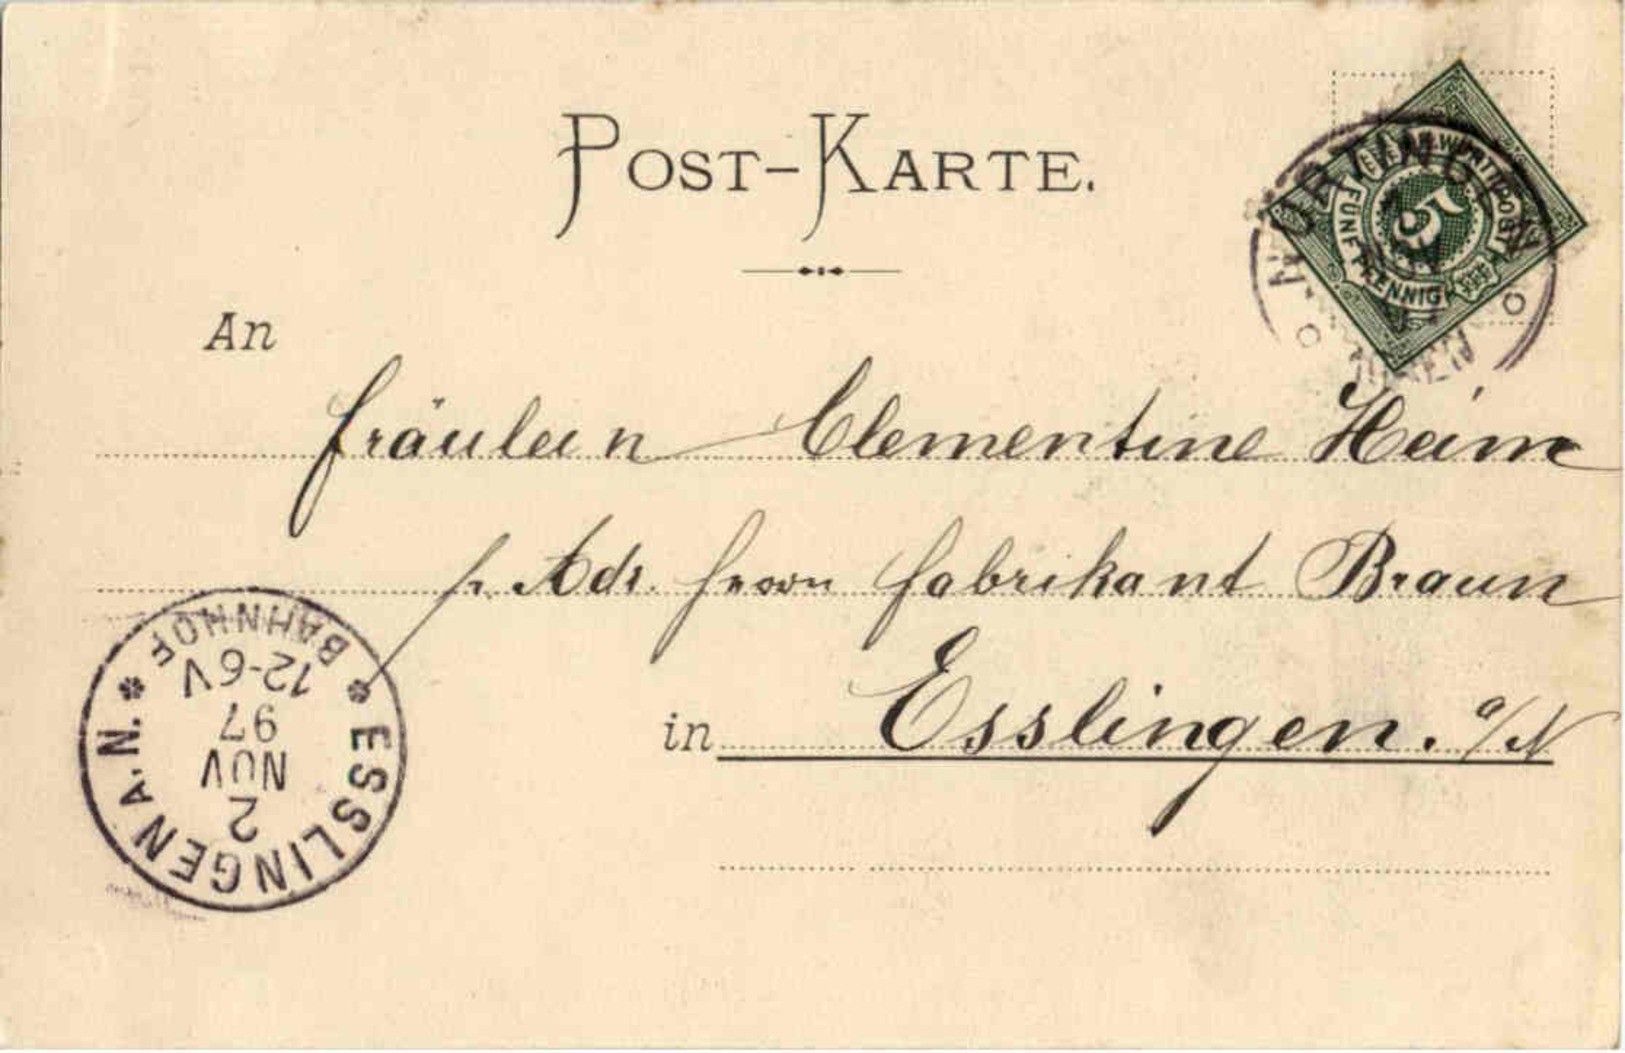 POST-KARTE.
K. WÜRTT. POST
FÜNF PFENNIG
5
An
Fräulein Clementine Heim
pr. Adr. Herrn Fabrikant Braun
in Esslingen. a/N
ESSLINGEN A.N.
2
NOV
97
12-6V
BAHNHOF